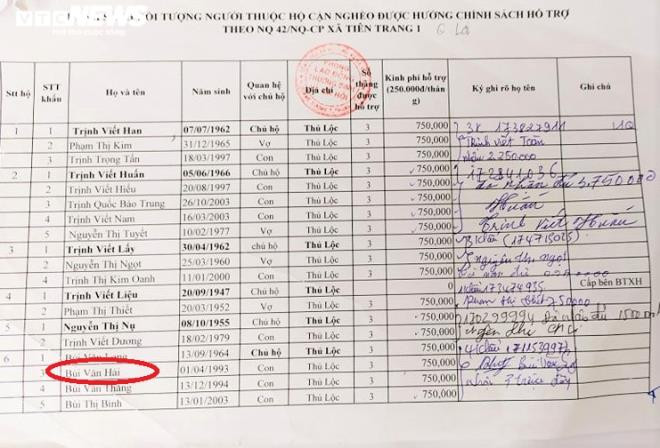 VTC NEWS
TƯỢNG NGƯỜI THUỘC HỘ CẬN NGHÈO ĐƯỢC HƯỞNG CHÍNH SÁCH HỖ TRỢ
THEO NQ 42/NQ-CP XÃ TIÊN TRANG 1
Stt hộ STT khẩu Họ và tên Năm sinh Quan hệ với chủ hộ Địa chỉ Số tháng được hỗ trợ Kinh phí hỗ trợ (250.000đ/tháng) Ký ghi rõ họ tên Ghi chú
1 1 Trịnh Viết Han 07/07/1962 Chủ hộ Thủ Lộc 3 750,000
2 Phạm Thị Kim 31/12/1965 Vợ Thủ Lộc 3 750,000 Trịnh Viết Toàn
3 Trịnh Trọng Tấn 18/03/1997 Con Thủ Lộc 3 750,000 2.250000
2 1 Trịnh Viết Huấn 05/06/1966 Chủ hộ Thủ Lộc 3 750,000 172841036
2 Trịnh Viết Hiếu 20/08/1997 Con Thủ Lộc 3 750,000 3.750000
3 Trịnh Quốc Bảo Trung 26/10/2003 Con Thủ Lộc 3 750,000 Huấn
4 Trịnh Viết Nam 16/03/2003 Con Thủ Lộc 3 750,000 Trịnh Viết Huấn
5 Nguyễn Thị Tuyết 10/02/1977 Vợ Thủ Lộc 3 750,000
3 1 Trịnh Viết Lấy 30/04/1962 chủ hộ Thủ Lộc 3 750,000
2 Nguyễn Thị Ngọt 25/03/1960 Vợ Thủ Lộc 3 750,000 Nguyễn Thị Ngọt
4 Trịnh Thị Kim Oanh 11/01/2000 Con Thủ Lộc 3 750,000
4 1 Trịnh Viết Liệu 20/09/1947 chủ hộ Thủ Lộc 0 Cấp bên BTXH
2 Phạm Thị Thiết 20/03/1952 Vợ Thủ Lộc 3 750,000
5 1 Nguyễn Thị Nụ 08/10/1955 Chủ hộ Thủ Lộc 3 750,000
2 Trịnh Viết Dương 18/02/1979 Con Thủ Lộc 3 750,000
6 1 Bùi Văn Long 13/09/1964 Chủ hộ Thủ Lộc 3 750,000
3 Bùi Văn Hải 01/04/1993 Con Thủ Lộc 3 750,000
4 Bùi Văn Thăng 13/12/1994 Con Thủ Lộc 3 750,000
5 Bùi Thị Bình 13/01/2003 Con Thủ Lộc 3 750,000
VTC NEWS